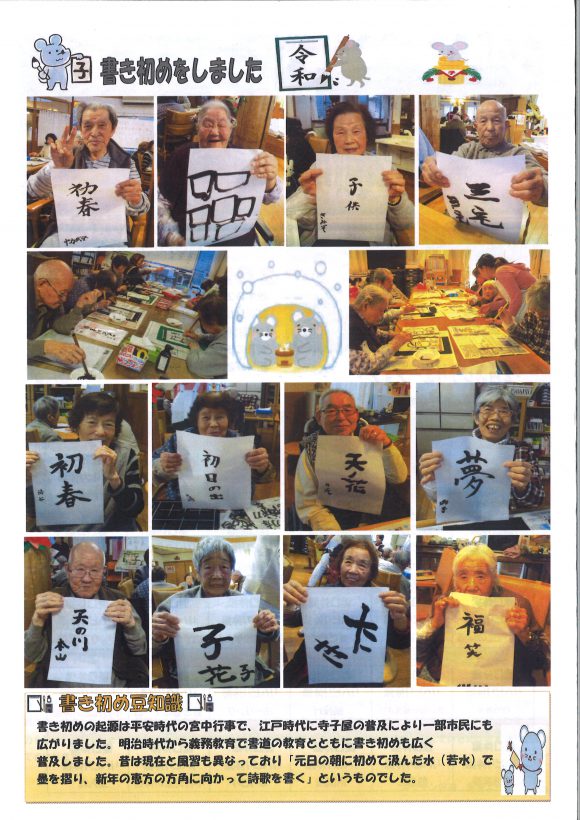 子
書き初めをしました
令和
初春
子供
三宅
初春
初日の出
天ノ花
夢
天の川
本山
子
花子
たき
福笑
書き初め豆知識
書き初めの起源は平安時代の宮中行事で、江戸時代に寺子屋の普及により一部市民にも
広がりました。明治時代から義務教育で書道の教育とともに書き初めも広く
普及しました。昔は現在と風習も異なっており「元日の朝に初めて汲んだ水（若水）で
墨を摺り、新年の恵方の方角に向かって詩歌を書く」というものでした。